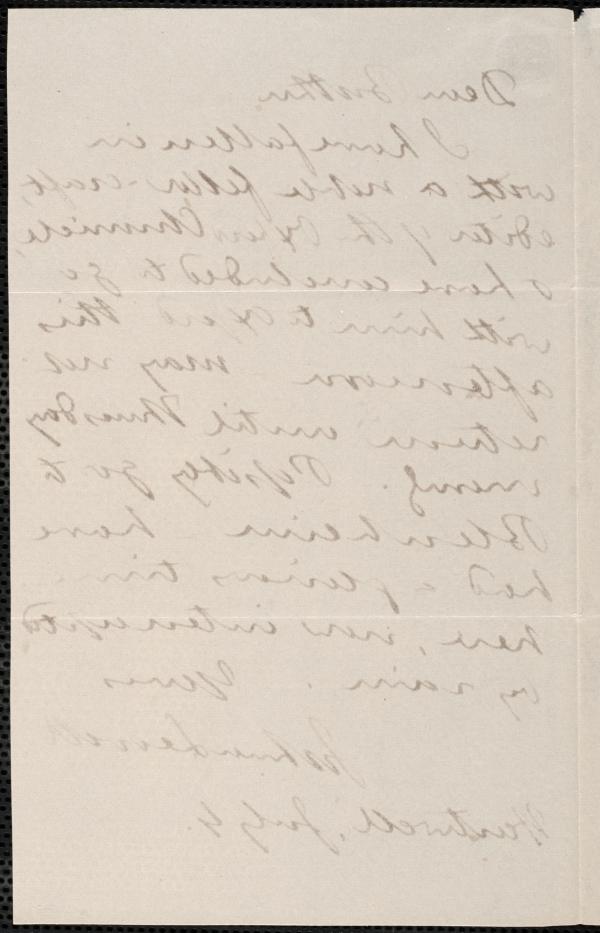 Dear Brother
I have fallen in
with a noble fellow-craft,
editor of the Oxford Chronicle,
& have concluded to go
with him to Oxford this
afternoon may not
return until Thursday
morng. Possibly go to
Blenheim have
had a glorious time
here, now interrupted
by rain. Yours
Joshua Leavitt
Hartwell, July 4.